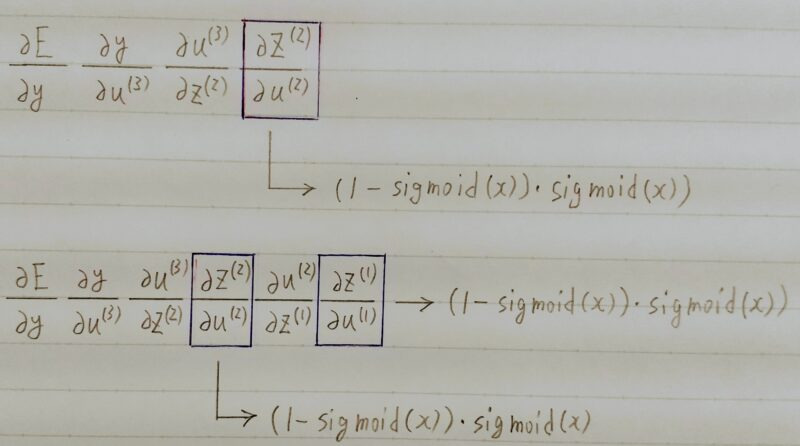 ∂E/∂y ∂y/∂u⁽³⁾ ∂u⁽³⁾/∂z⁽²⁾ ∂z⁽²⁾/∂u⁽²⁾
(1 - sigmoid(x))・sigmoid(x))
∂E/∂y ∂y/∂u⁽³⁾ ∂u⁽³⁾/∂z⁽²⁾ ∂z⁽²⁾/∂u⁽²⁾ ∂u⁽²⁾/∂z⁽¹⁾ ∂z⁽¹⁾/∂u⁽¹⁾ → (1 - sigmoid(x))・sigmoid(x))
(1 - sigmoid(x))・sigmoid(x)